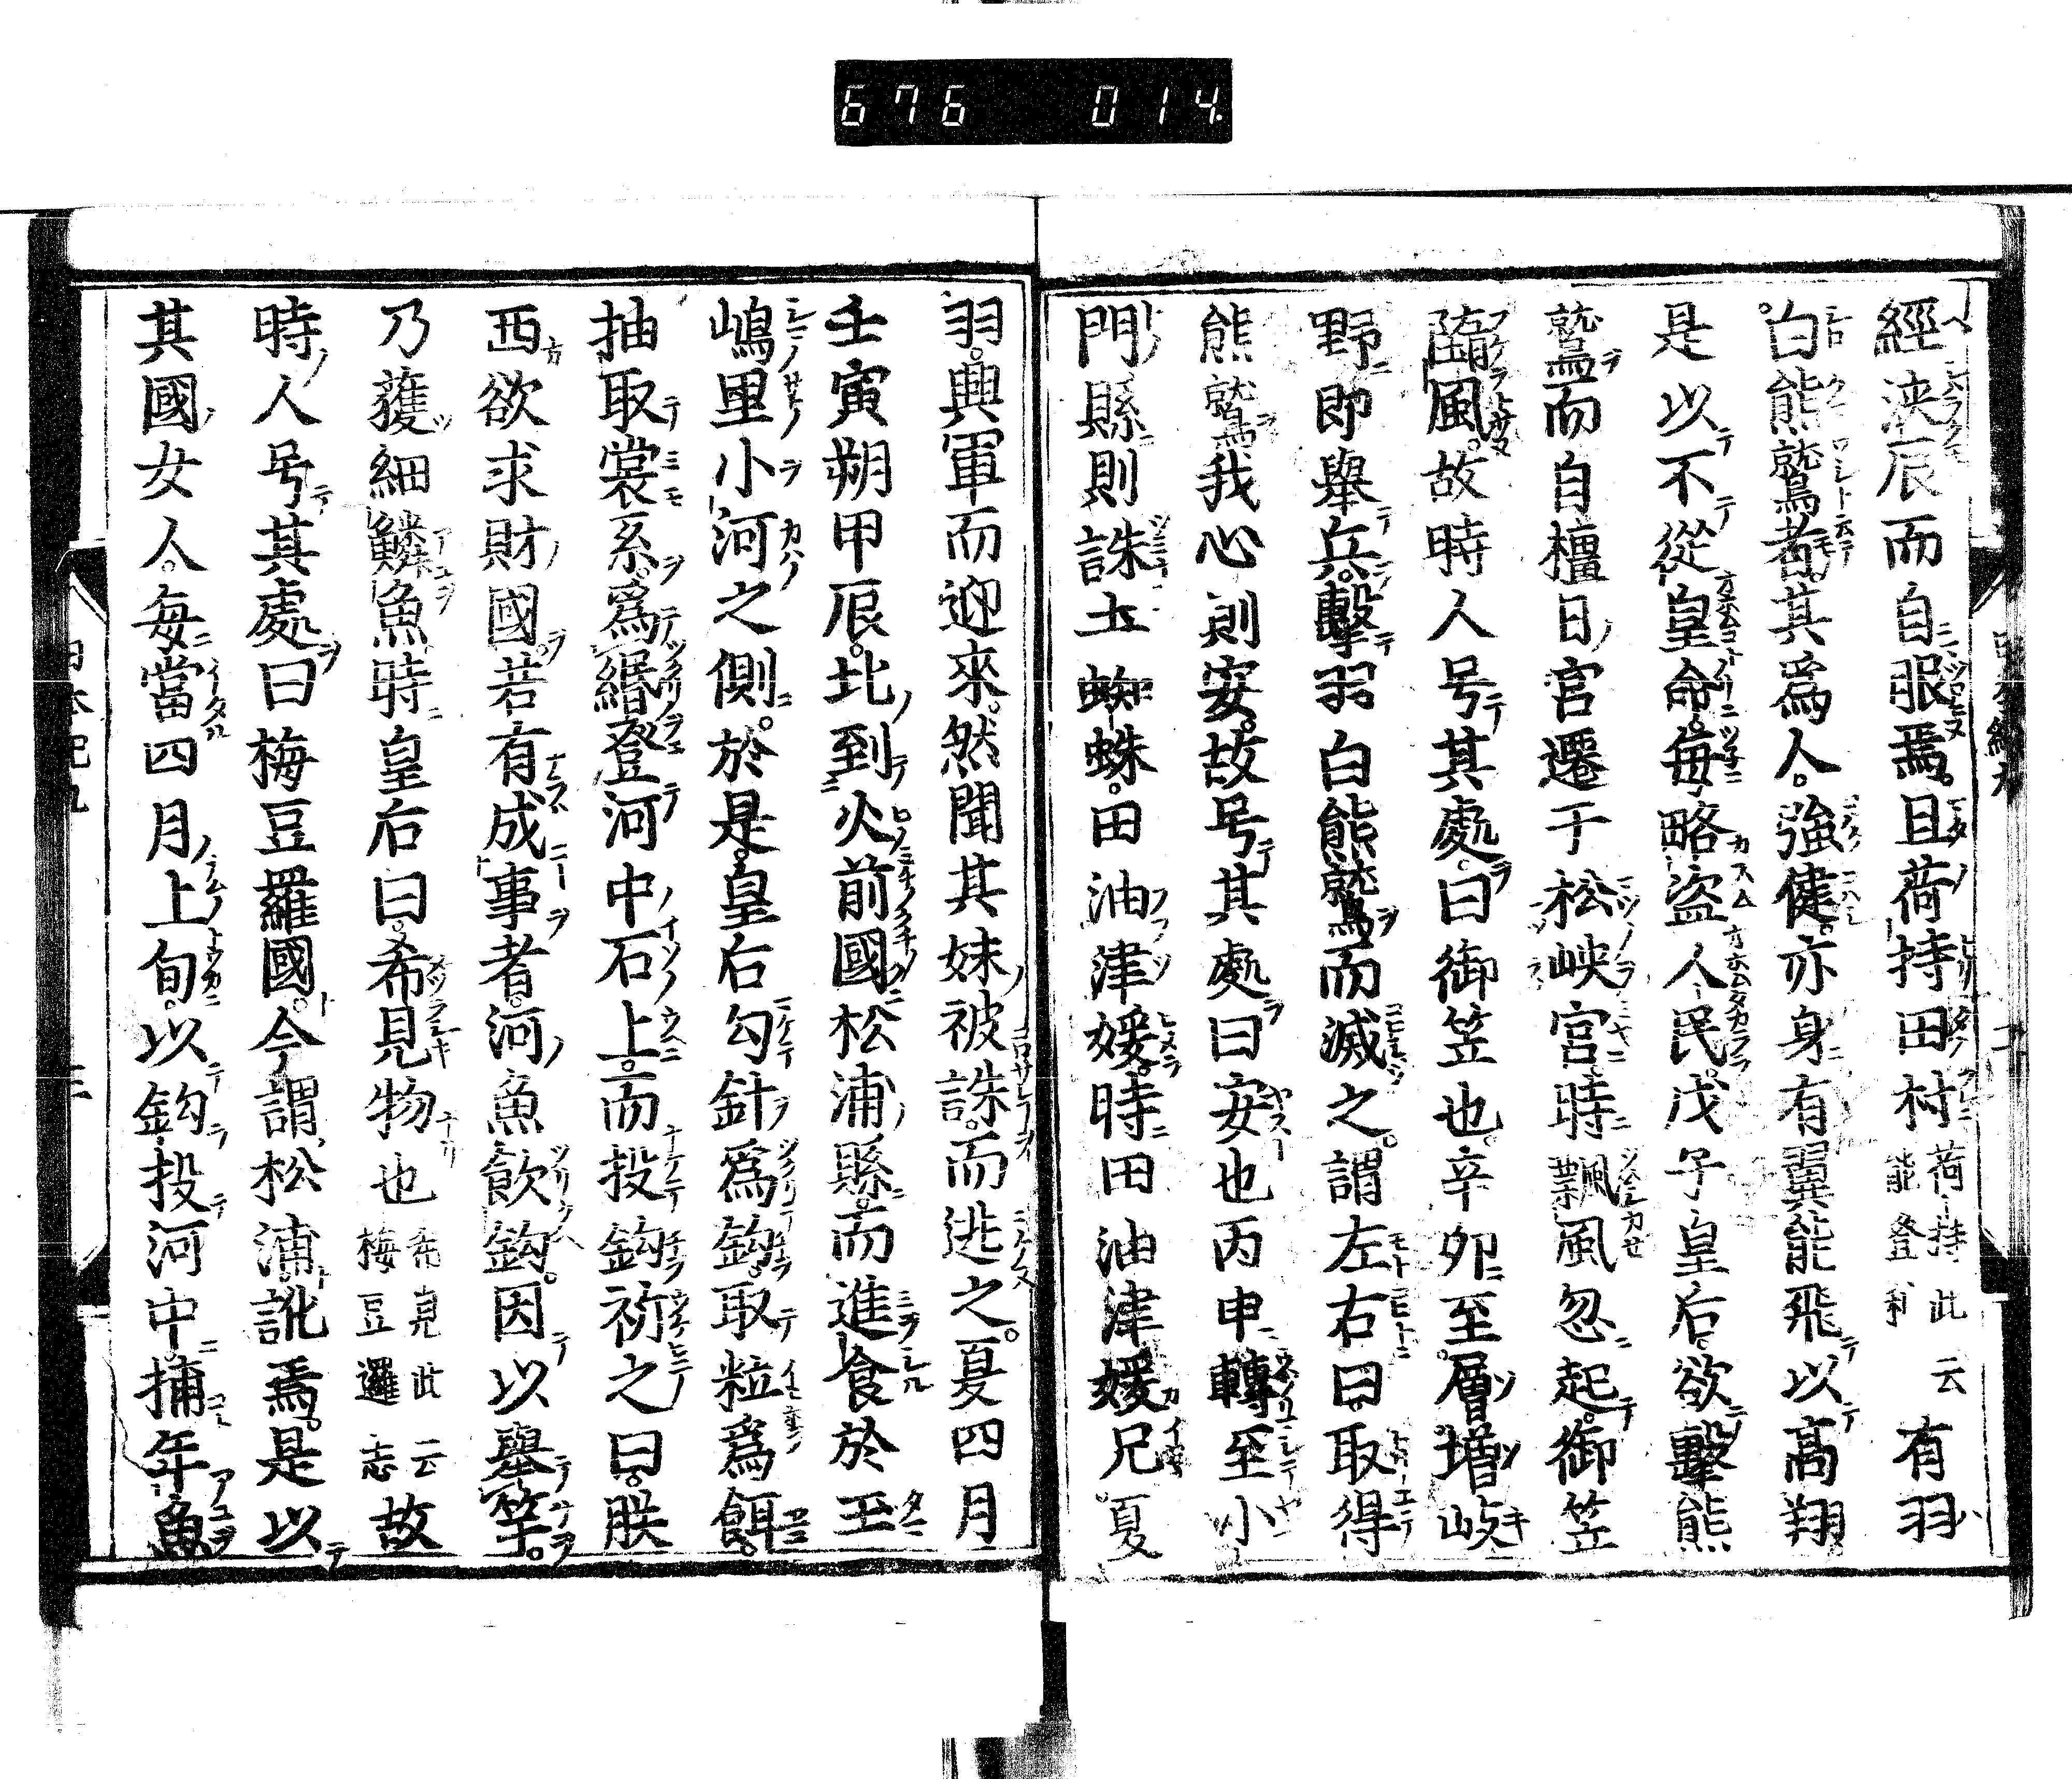 676 014
經浹辰而自服焉且荷持田村荷持此云能登利有羽
白熊鷲者其爲人強健亦身有翼能飛以高翔
是以不從皇命每略盗人民戊子皇后欲擊熊
鷲而自橿日宮遷于松峽宮時飄風忽起御笠
隳風故時人号其處曰御笠也辛卯至層増岐
野即舉兵擊羽白熊鷲而滅之謂左右曰取得
熊鷲我心則安故号其處曰安也丙申轉至山
門縣則誅土蜘蛛田油津媛時田油津媛兄夏
羽興軍而迎來然聞其妹被誅而逃之夏四月
壬寅朔甲辰北到火前國松浦縣而進食於玉
嶋里小河之側於是皇后勾針爲鈎取粒爲餌
抽取裳糸爲緡登河中石上而投鈎祈之曰朕
西欲求財國若有成事者河魚飲鈎因以舉竿
乃獲細鱗魚時皇后曰希見物也希見此云梅豆邏志故
時人号其處曰梅豆羅國今謂松浦訛焉是以
其國女人每當四月上旬以鈎投河中捕年魚